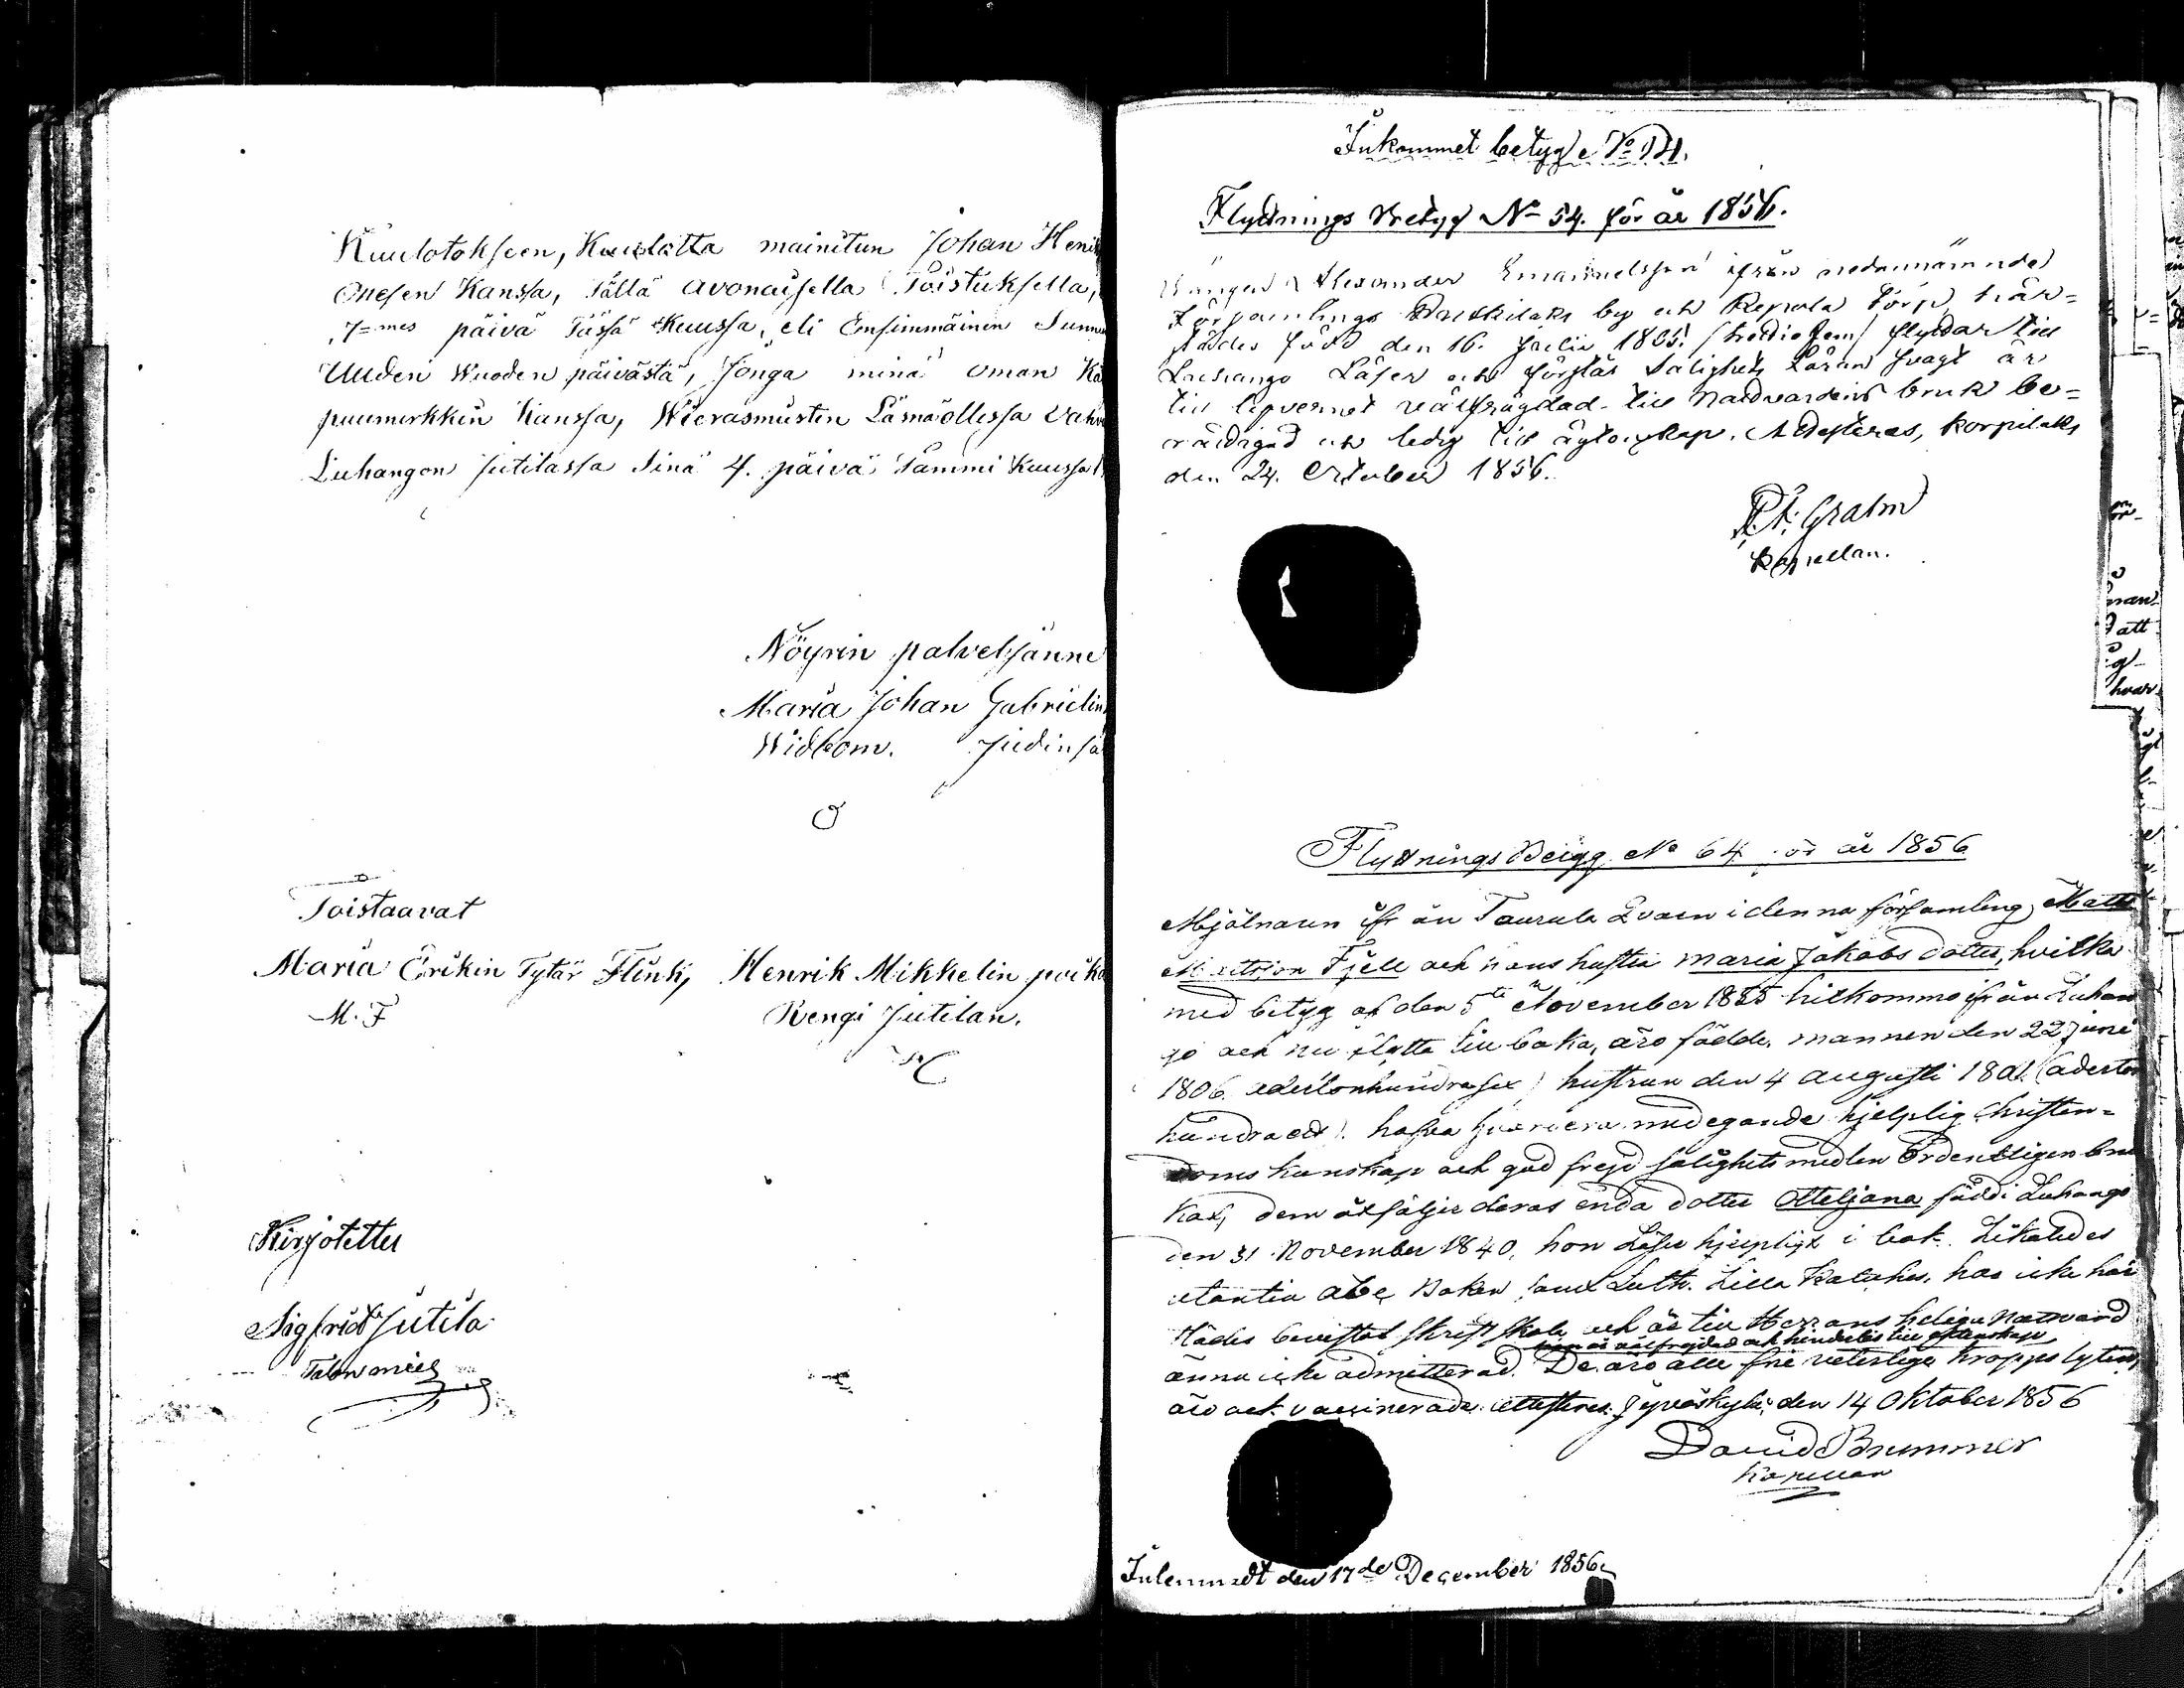 Kuulotokseen, Kuulotta mainitun Johan Henrik
Onesen Kanssa, Tällä avonaisella Toistuksella,
7=mes päivä Tässä Kuussa, eli Ensimmäinen Sunnu
Uuden Wuoden päivästä, Jonga minä oman Kä
puumerkkin Kanssa, Wierasmiisten Läsnäollessa vahv
Luhangon Jutilassa Sinä 4. päivä Tammi Kuussa
Nöyrin palvelijänne
Maria Johan Gabrielin
Widbom. Judinsa
Toistaavat
Maria Erikin Tytär Flink, Henrik Mikkelin poika
M. F Rengi Jutilan.
Kirjotettu
Sigfrid Jutila
Talon mies
Inkommet betyg No 14.
Flyttnings Betyg No 54. för år 1856.
Drängen Alexander Emanuelsson ifrån nedannämnde
Församlings by och Repola Torp, här=
städes född den 16. Julii 1835. /trettiofem/ flyttar till
Luhango Läser och förstår Salighets Läran svagt är
till lefvernet välfrägdad till Nattvardens bruk be=
rättigad och ledig till ägtenskap. Attesteras, Korpilaks
den 24. October 1856.
Grahn
Kapellan.
Flyttnings Betyg No 64 för år 1856
Mjölnaren ifrån Taurula Qvarn i denna församling, Matts
Mattsson Fjell och hans hustru Maria Jakobs dotter, hvilka
med betyg af den 5te November 1855 hitkommo ifrån Luhan
go och nu flytta tillbaka, äro födde, mannen den 22 Juni
1806. adertonhundrasex) hustrun den 4 Augusti 1801. (aderton
hundraett). hafva hvardera medegande hjelplig Christen=
doms kunskap och god frejd salighets medlen Ordentligen bru
kat, dem åtföljer deras enda dotter Otteljana född i Luhango
den 31 November 1840, hon Läser hjelpligt i bok. Likaledes
utantill abc Boken samt Luth. Lilla Kateches. har icke här
städes bevistat Skriftskola och är till Herrans heliga Nattvard
hon är välfrejdad och hinderlös till äktenskap
ännu icke admitterad. De äro alla frie veterliga kropps lyten,
äro ock vaccinerade. attesteras Jyväskylä; den 14 Oktober 1856
David Brummer
Kapellan
Inlemnadt den 17de December 1856.